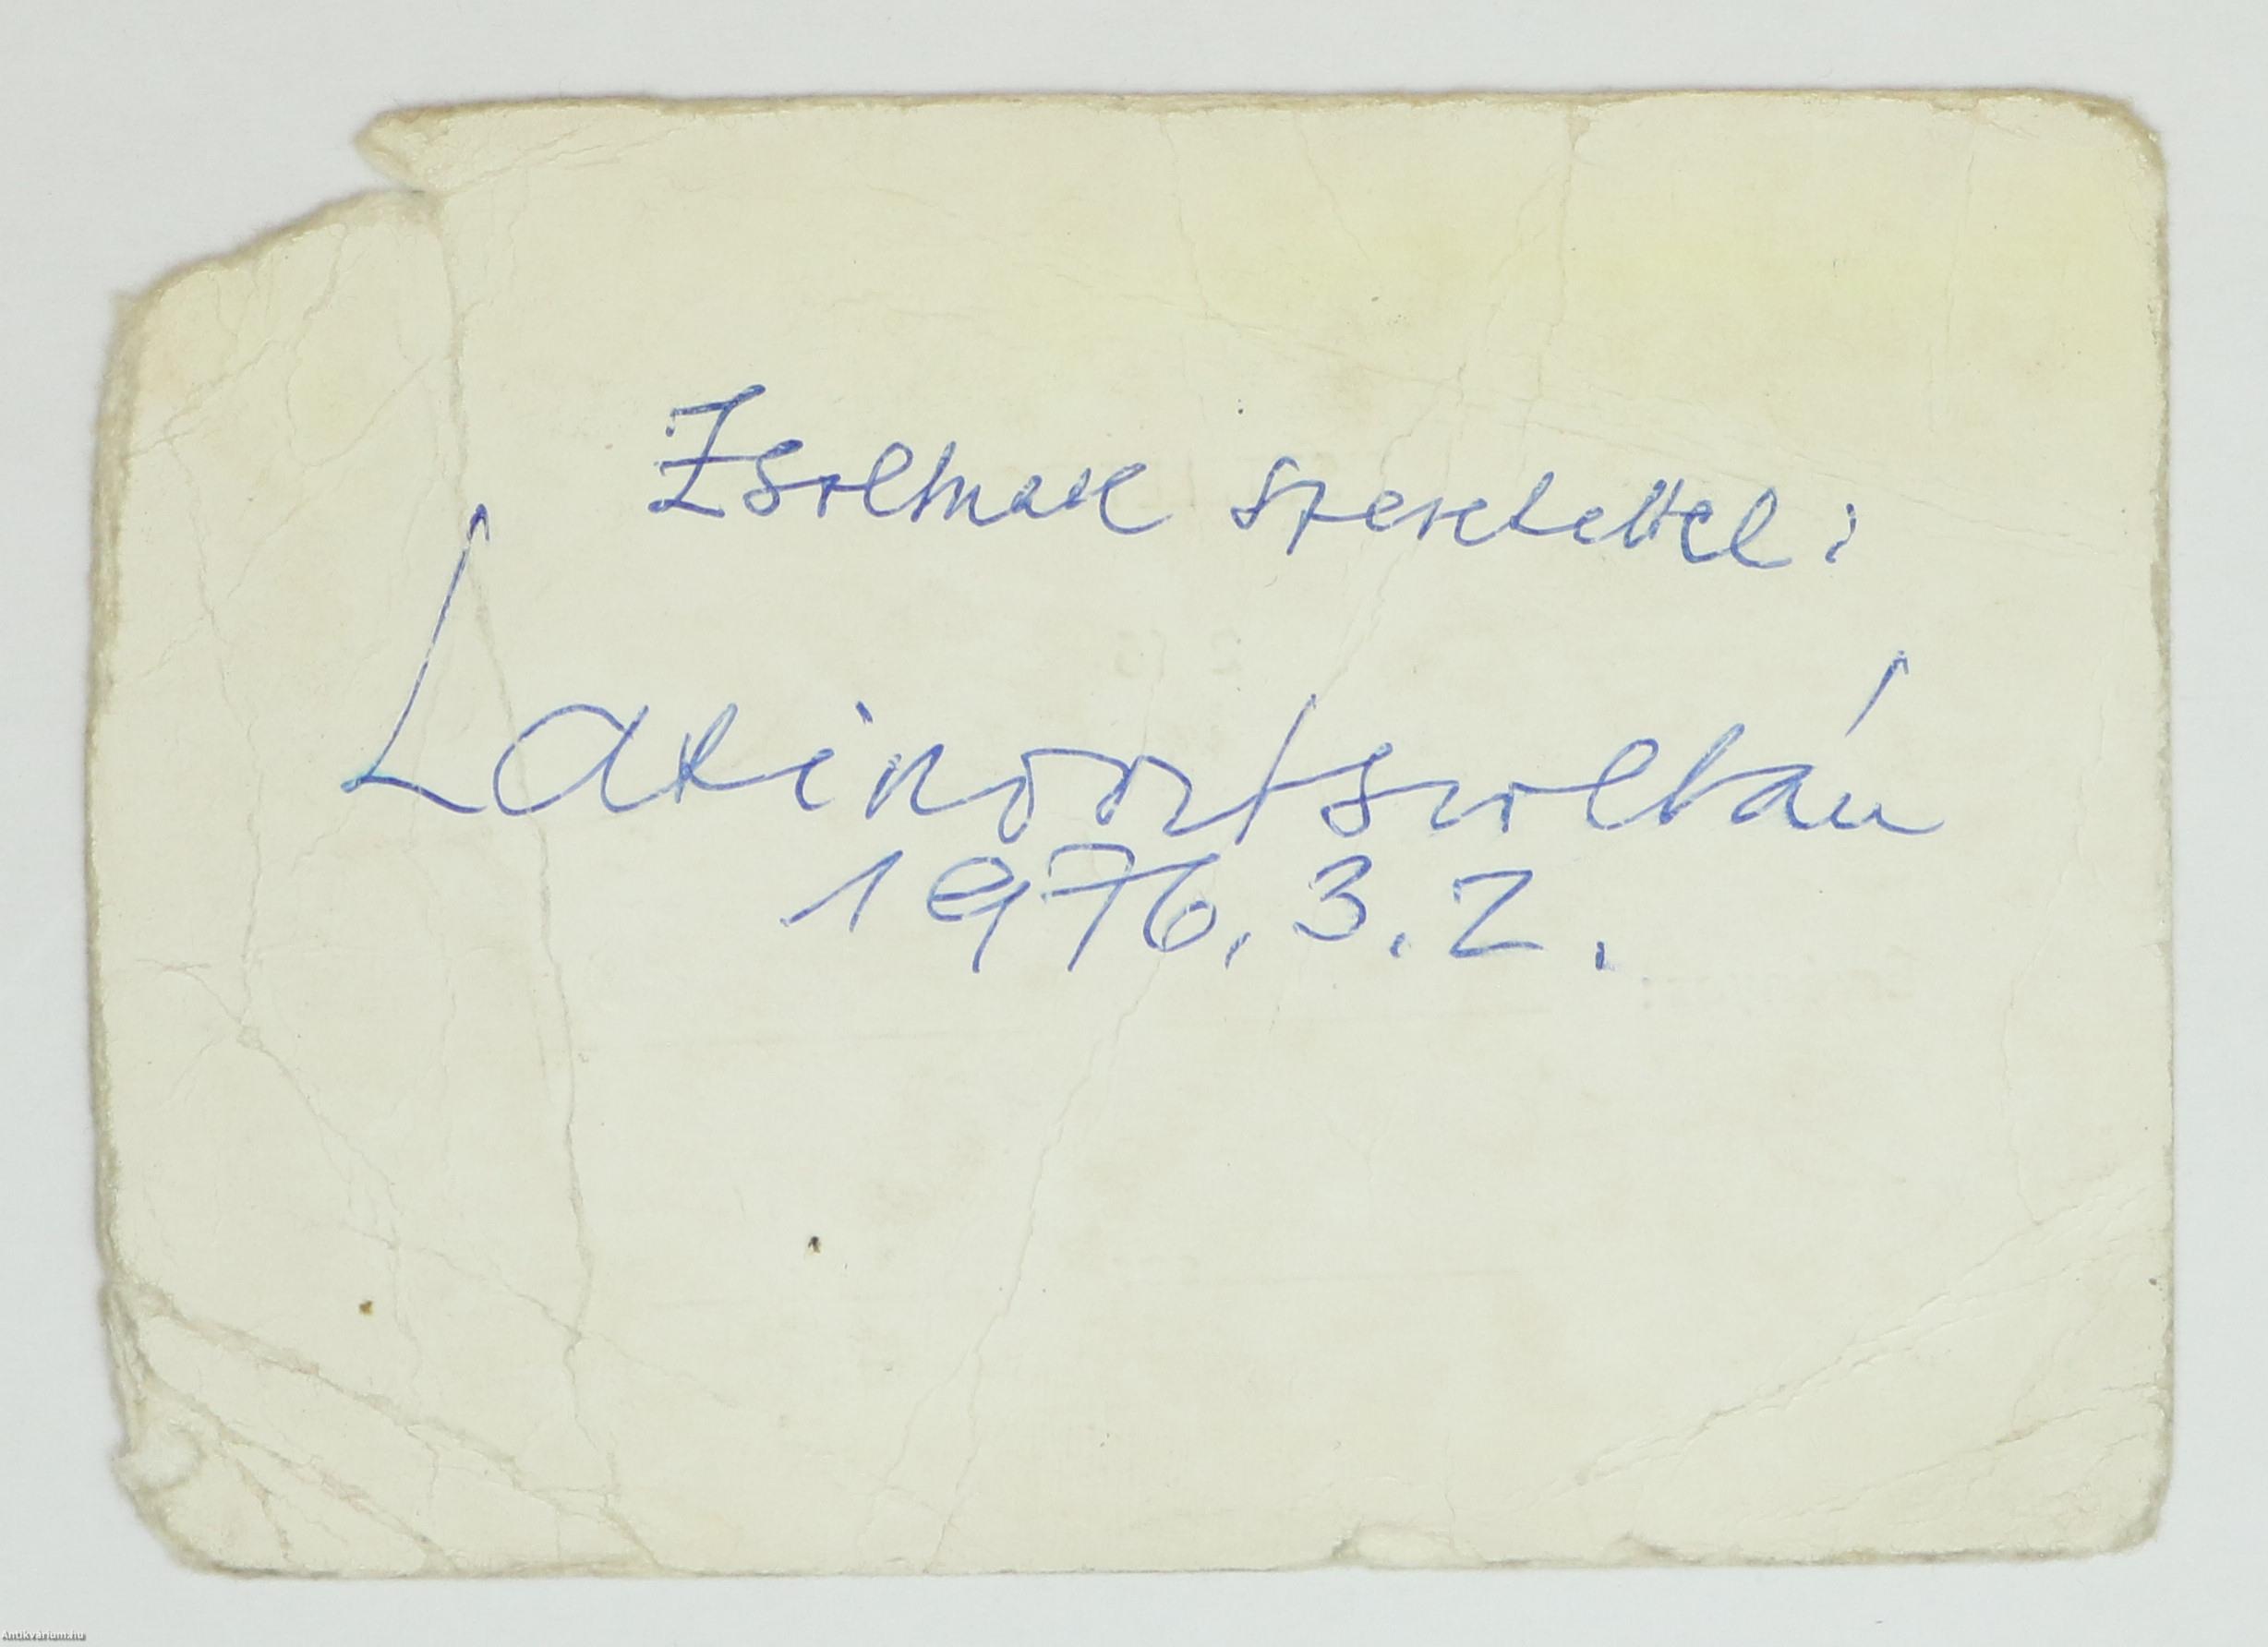 Zsoltnak szeretettel:
Latinovitszoltán
1976.3.2.
Antikvárium.hu